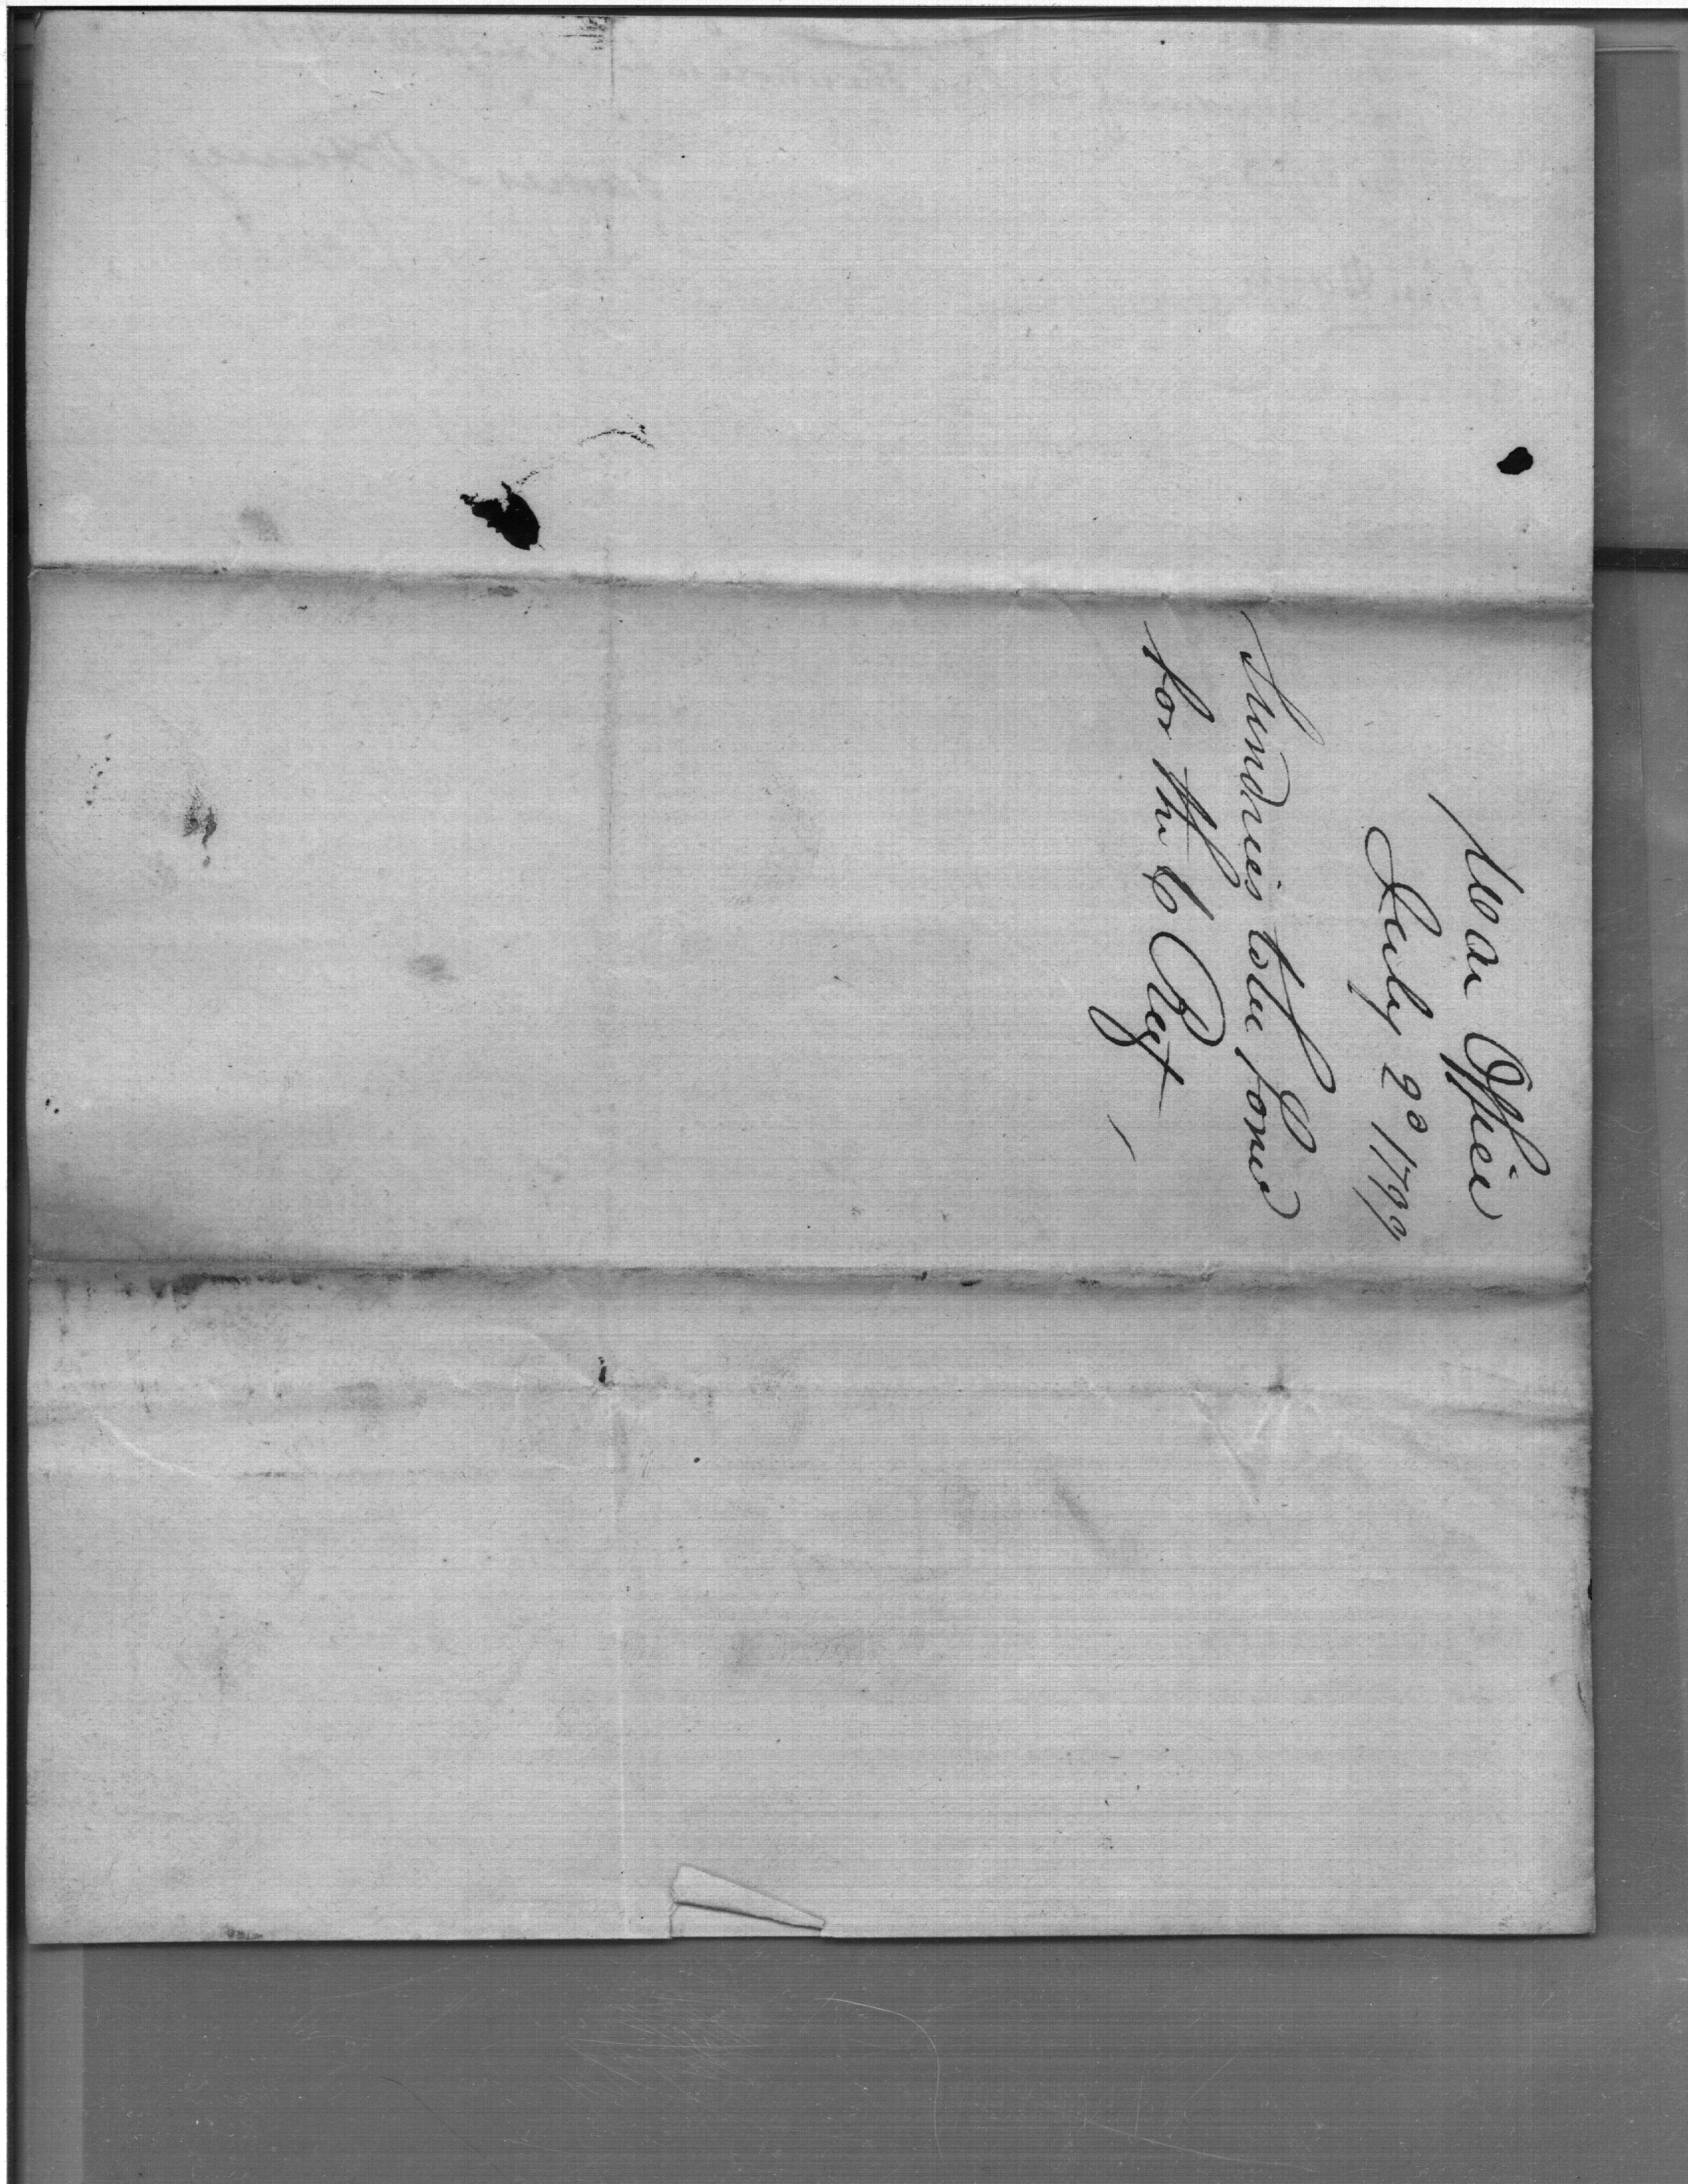 War Office
July 2d 1799
Sundries to be forwd
for the 6 Regt